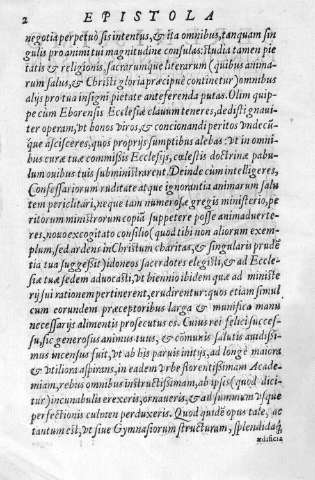 2 EPISTOLA
negotia perpetuò sis intentus, & ita omnibus, tanquam sin
gulis pro animi tui magnitudine consulas: studia tamen pie
tatis & religionis, sacrarumque literarum (quibus anima
rum salus, & Christi gloria præcipuè continetur) omnibus
alijs pro tua insigni pietate anteferenda putas. Olim quip
pe cum Eborensis Ecclesiæ clauum teneres, dedisti gnaui
ter operam, vt bonos viros, & concionandi peritos vndecũ
que ascisceres, quos proprijs sumptibus alebas: vt in om
nibus curæ tuæ commissis Ecclesijs, cælestis doctrinæ pabu
lum ouibus tuis subministrarent. Deinde cùm intelligeres,
Confessariorum ruditate atque ignorantia animarum salu
tem periclitari, neque tam numerosæ gregis ministerio, pe
ritorum ministrorum copiã suppetere posse animaduerte
res, nouo excogitato consilio (quod tibi non aliorum exem
plum, sed ardens in Christum charitas, & singularis prudẽ
tia tua suggessit) idoneos sacerdotes elegisti, & ad Eccle
siæ tuæ sedem aduocasti, vt biennio ibidem quæ ad ministe
rij sui rationem pertinerent, erudirentur: quos etiam simul
cum eorundem præceptoribus larga & munifica manu
necessarijs alimentis prosecutus es. Cuius rei felici succes
su, sic generosus animus tuus, & cõmunis salutis auidissi
mus incensus fuit, vt ab his paruis initijs, ad longè maiora
& vtiliora aspirans, in eadem vrbe florentissimam Acade
miam, rebus omnibus instructissimam, ab ipsis (quod dici
tur) incunabulis erexeris, ornaueris, & ad summum vsque
perfectionis culmen perduxeris. Quod quidẽ opus tale, ac
tantum est, vt siue Gymnasiorum structuram, splendidaq́;
ædificia